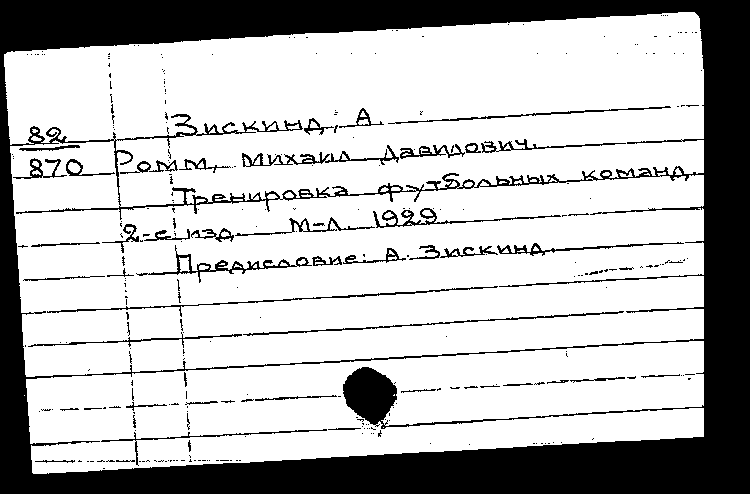 Зискинд, А.
82
870 Ромм, Михаил Давидович.
Тренировка футбольных команд.
2-е изд. М-Л. 1929
Предисловие: А. Зискинд.